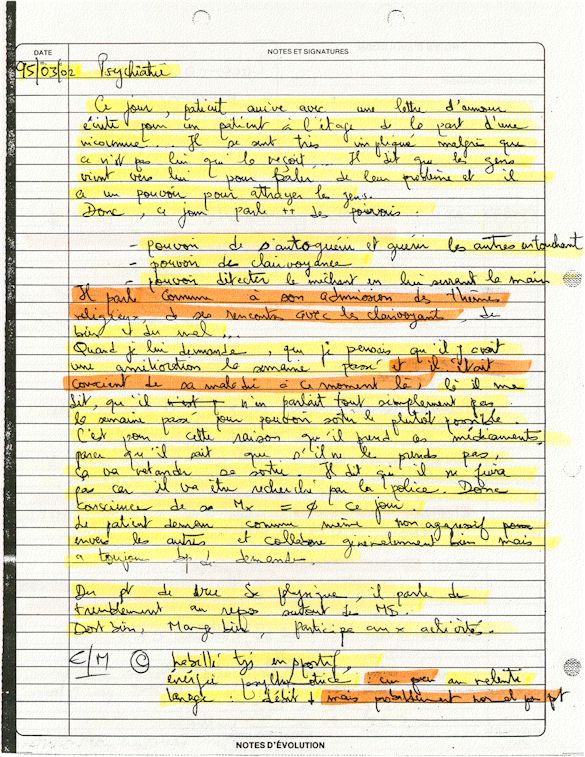 DATE
NOTES ET SIGNATURES
95/03/02 Psychiatrie
Ce jour, patient arrive avec une lettre d'amour
écrite pour un patient à l'étage de la part d'une
inconnue... Il se sent très impliqué malgré que
ce n'est pas lui qui la reçoit... Il dit que les gens
vient vers lui pour parler de leur problème et il
a un pouvoir pour attrayer les gens.
Donc, ce jour parle ++ de pouvoirs.
- pouvoir de s'autoguérir et guérir les autres en touchant
- pouvoir de clairvoyance
- pouvoir détecter le méchant en lui serrant la main
Il parle comme à son admission des thèmes
religieux et se rencontre avec les clairvoyants, de
bien et du mal...
Quand je lui demande, que je pensais qu'il y avait
une amélioration la semaine passé et il était
conscient de sa maladie à ce moment là, là il me
dit, qu'il n'en parlait tout simplement pas
la semaine passé pour pouvoir sortir le plutôt possible.
C'est pour cette raison qu'il prend ces médicaments,
parce qu'il sait que s'il ne les prends pas,
ça va retarder sa sortie. Il dit qu'il ne fuira
pas car il va être recherché par la police. Donc
conscience de sa Mx = ∅ ce jour.
Le patient demeure comme même non aggressif
envers les autres et collabore généralement bien mais
a toujours de demande.
Du pt de vue physique, il parle de
tremblement au repos surtout des MS.
Dort bien, Mange bien, participe aux activités.
E/M © habillé tjs en sportif,
énergie psychomotrice : un peu au ralenti
langage : débit ↓ mais probablement normal pour pt
NOTES D'ÉVOLUTION